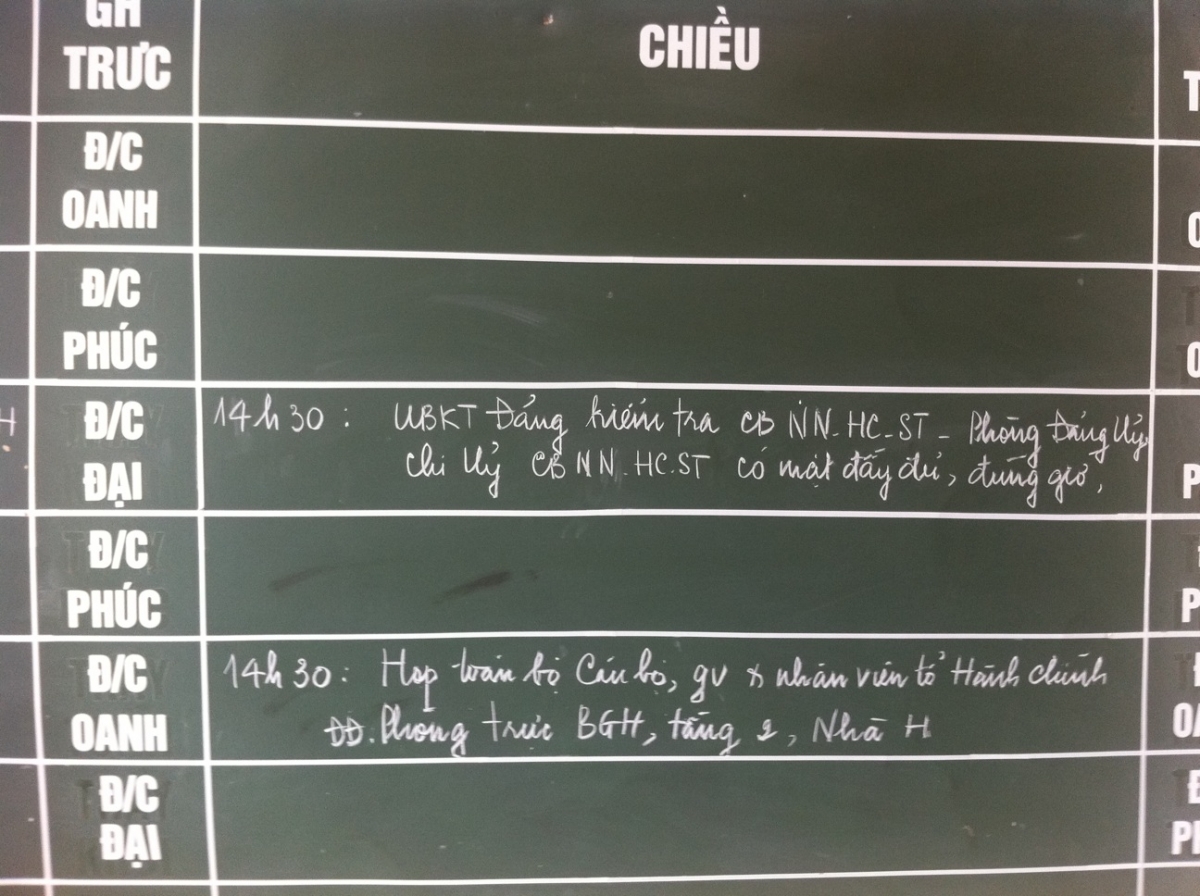 GH
TRƯC
CHIỀU
Đ/C
OANH
Đ/C
PHÚC
H
Đ/C
ĐẠI
14h30: UBKT Đảng kiểm tra CB NN-HC-ST - Phòng Đảng Uỷ
Chi Uỷ CB NN-HC.ST có mặt đấy đủ, đúng giờ,
Đ/C
PHÚC
Đ/C
OANH
14h30: Họp toàn bộ Cán bộ, gv & nhân viên tổ Hành chính
ĐĐ. Phòng trực BGH, tầng 2, Nhà H
Đ/C
ĐẠI